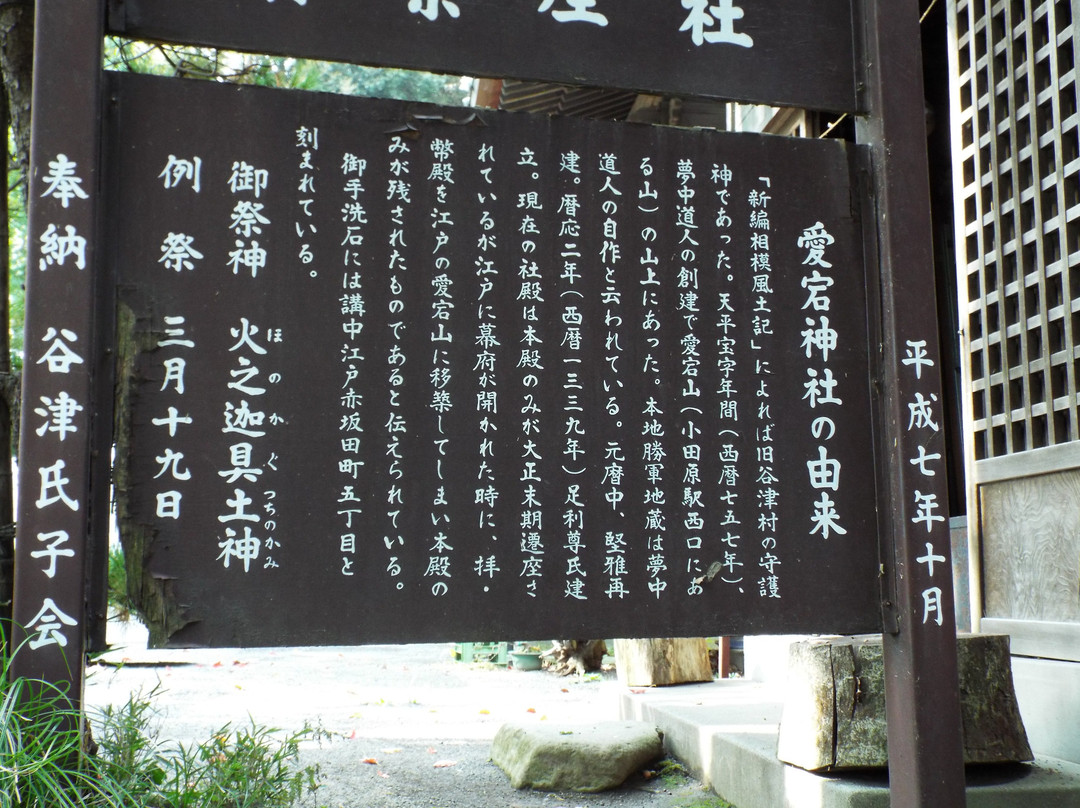 社
平成七年十月
愛宕神社の由来
「新編相模風土記」によれば旧谷津村の守護
神であった。天平宝字年間（西暦七五七年）、
夢中道人の創建で愛宕山（小田原駅西口にあ
る山）の山上にあった。本地勝軍地蔵は夢中
道人の自作と云われている。元暦中、堅雅再
建。暦応二年（西暦一三三九年）足利尊氏建
立。現在の社殿は本殿のみが大正末期遷座さ
れているが江戸に幕府が開かれた時に、拝・
幣殿を江戸の愛宕山に移築してしまい本殿の
みが残されたものであると伝えられている。
御手洗石には講中江戸赤坂田町五丁目と
刻まれている。
御祭神 火之迦具土神
ほのかぐつちのかみ
例祭 三月十九日
奉納 谷津氏子会